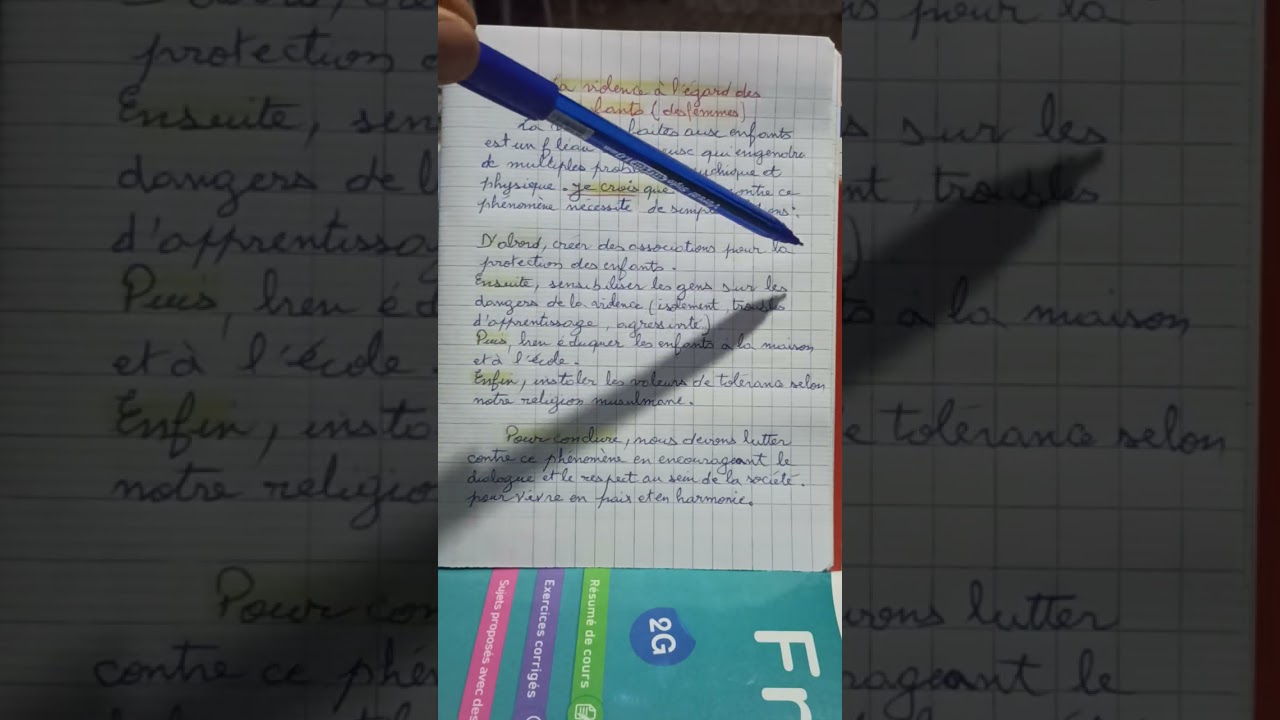 La violence à l'égard des
enfants (des femmes)
La faites aux enfants
est un fléau qui engendre
de multiples psychique et
physique. Je crois que contre ce
phénomène nécessite de simples :
D'abord, créer des associations pour la
protection des enfants.
Ensuite, sensibiliser les gens sur les
dangers de la violence (isolement, troubles
d'apprentissage, agressivité)
Puis, bien éduquer les enfants à la maison
et à l'école.
Enfin, instaler les valeurs de tolérance selon
notre religion musulmane.
Pour conclure, nous devons lutter
contre ce phénomène en encourageant le
dialogue et le respect au sein de la société.
pour vivre en paix et en harmonie.
Sujets proposés avec des
Exercices corrigés
Résumé de cours
2G
Fr